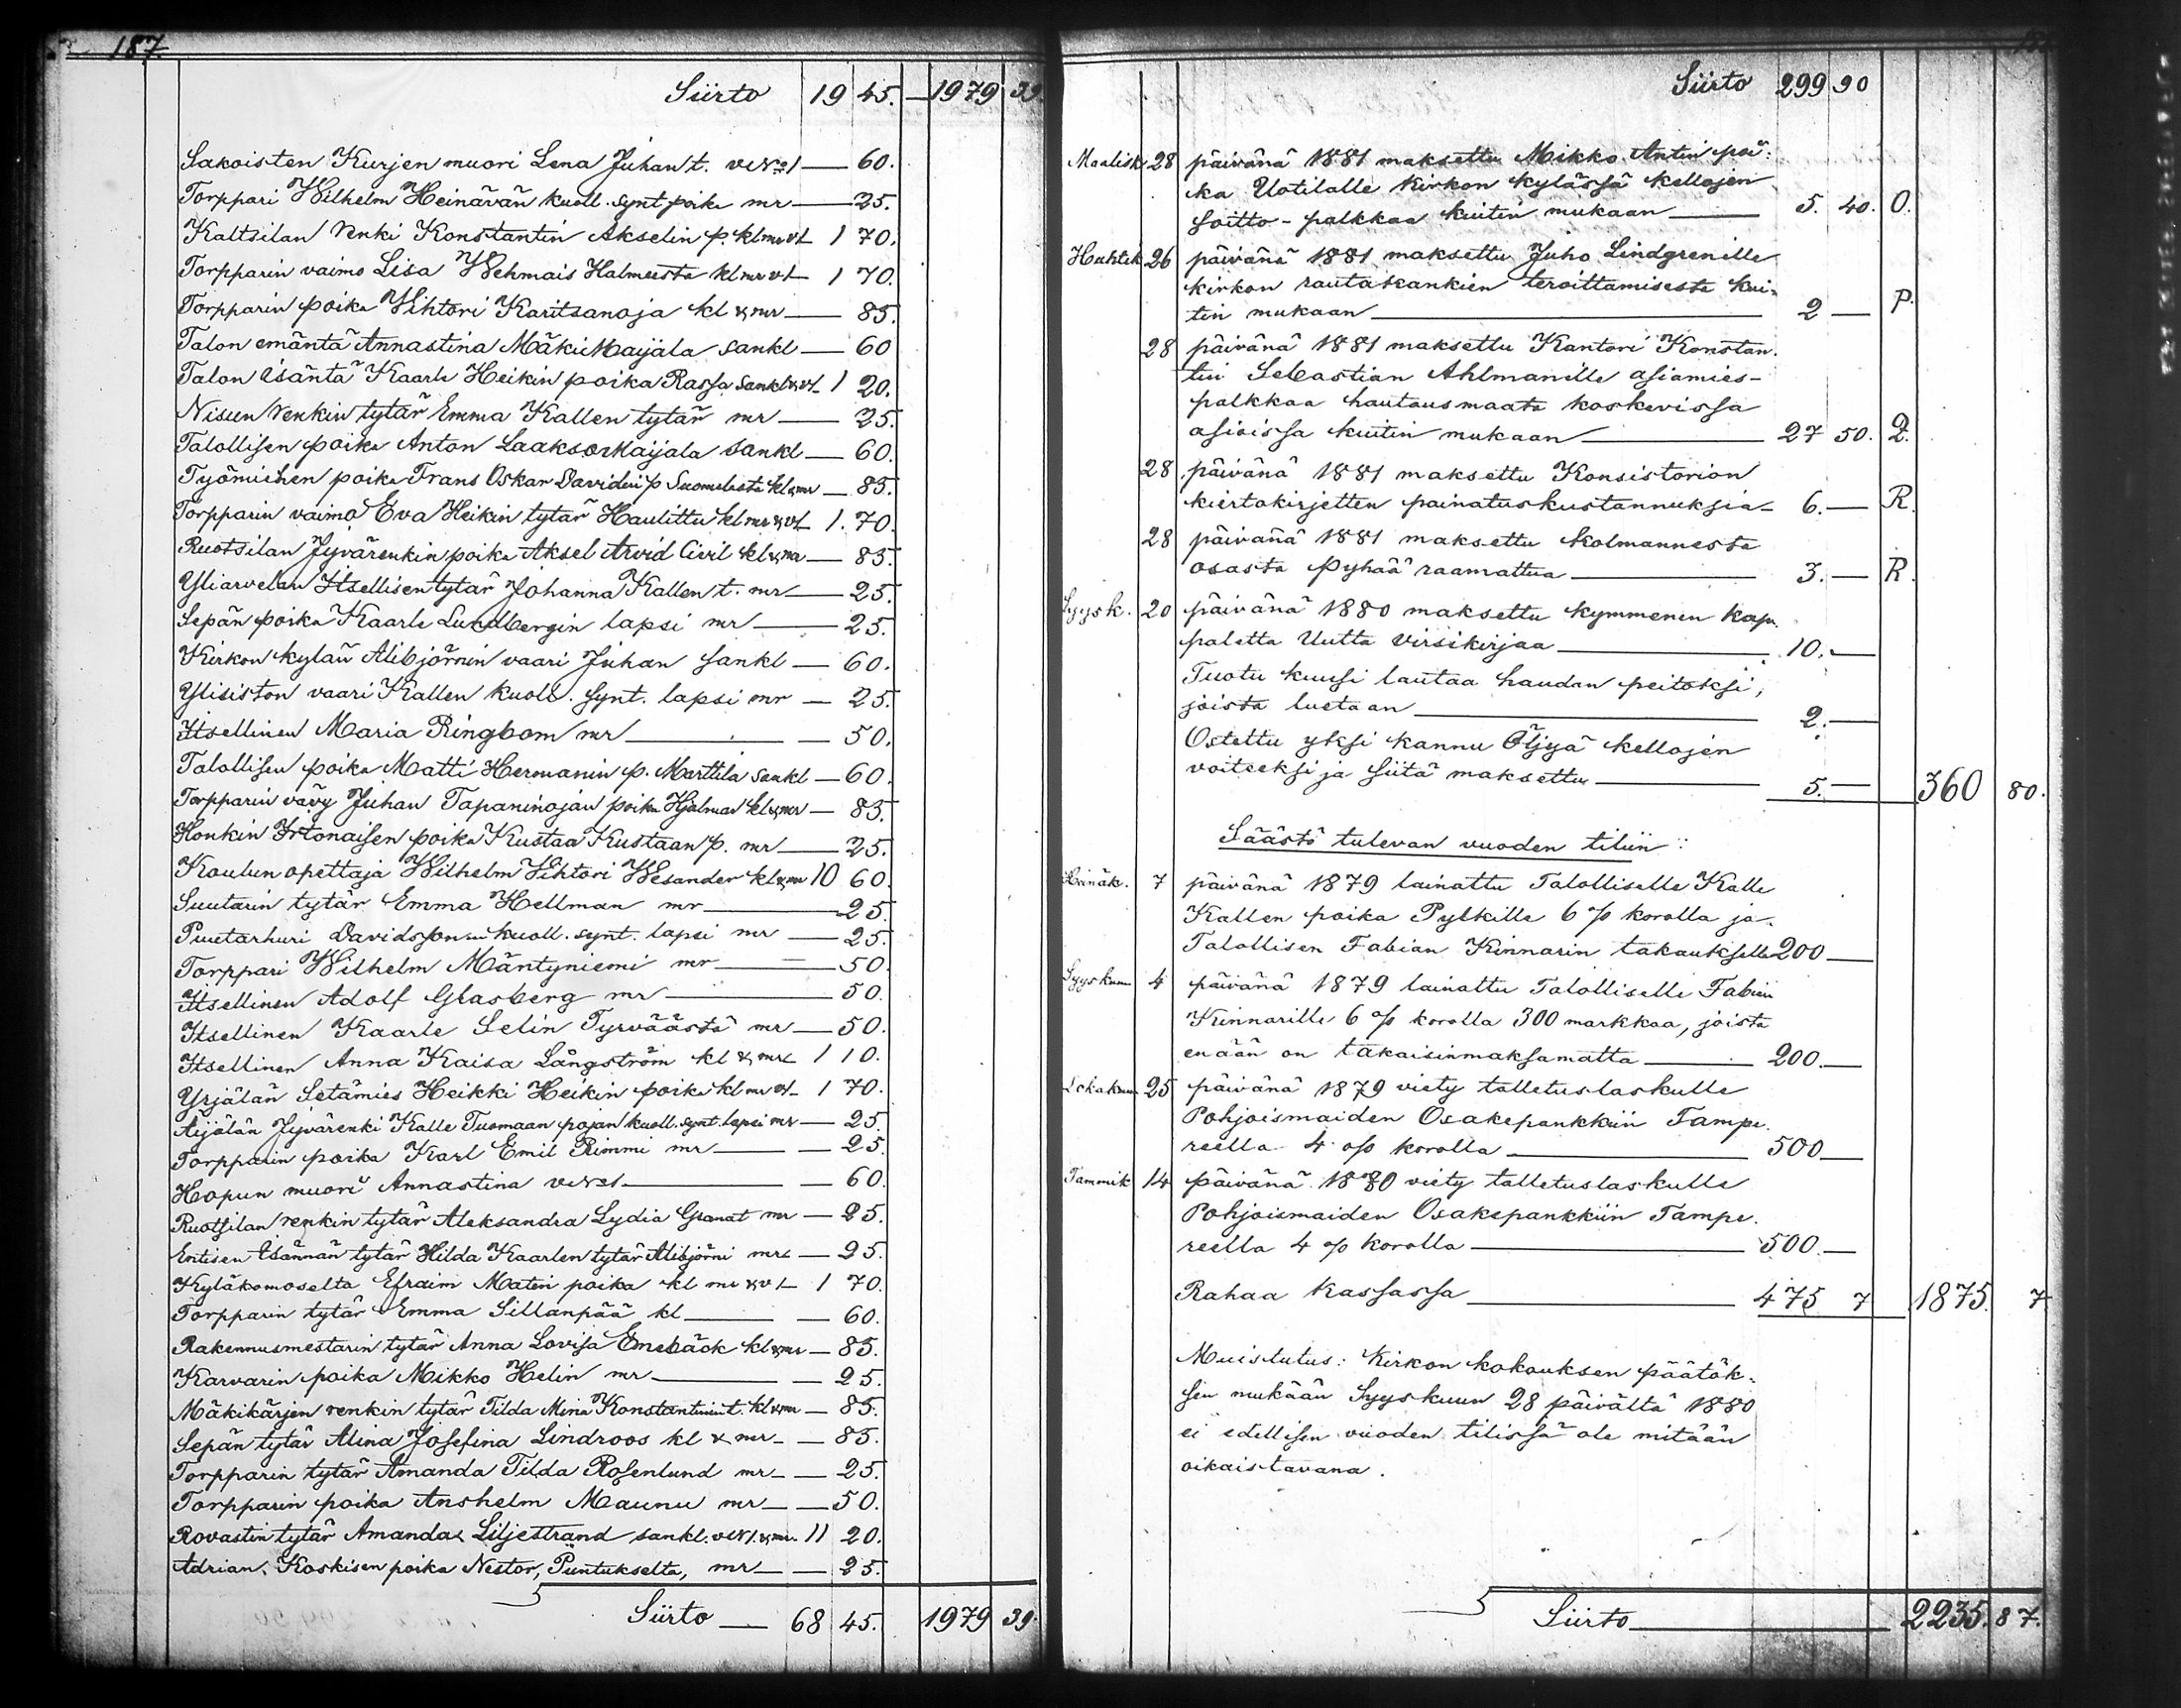 187.
Siirto 19 45. — 1979 39.
Sakoisten Kurjen muori Lena Juhan t. — 60.
Torppari Wilhelm Heinävän kuoll. synt poika mr — 25.
Kaltsilan renki Konstantin Akselin p. kl mr vt 1 70.
Torpparin vaimo Lisa Wehmais Halmeesta kl mr vt 1 70.
Torpparin poika Wihtori Karitsanoja kl & mr — 85.
Talon emäntä Annastina Mäki Maijala sankl — 60
Talon isäntä Kaarle Heikin poika Rassa sankl & vt 1 20.
Nisun renkin tytär Emma Kallen tytär mr — 25.
Talollisen poika Anton Laakso Maijala sankl — 60.
Työmiehen poika Frans Oskar Davidin p Suomelasta kl & mr — 85.
Torpparin vaimo Eva Heikin tytär Haulittu kl mr & vt 1. 70.
Ruotsilan Jyvärenkin poika Aksel Arvid Civil kl & mr — 85.
Yliarvelan Itsellisen tytär Johanna Kallen t. mr — 25.
Sepän poika Kaarle Lundbergin lapsi mr — 25.
Kirkon kylän Alibjörnin vaari Juhan sankl — 60.
Ylisiston vaari Kallen kuoll. synt. lapsi mr — 25.
Itsellinen Maria Ringbom mr — 50.
Talollisen poika Matti Hermanin p. Marttila sankl — 60.
Torpparin vävy Juhan Tapaninojan poika Hjalmar kl & mr — 85.
Honkin Irtonaisen poika Kustaa Kustaan p. mr — 25.
Koulun opettaja Wilhelm Wihtori Wesander kl & mr 10 60.
Suutarin tytär Emma Hellman mr — 25.
Puutarhuri Davidssonin kuoll. synt. lapsi mr — 25.
Torppari Wilhelm Mäntyniemi mr — 50.
Itsellinen Adolf Glasberg mr — 50.
Itsellinen Kaarle Selin Tyrväästä mr — 50.
Itsellinen Anna Kaisa Långström kl & mr 1 10.
Yrjälän Setämies Heikki Heikin poika kl mr vt 1 70.
Äijälän Jyvärenki Kalle Tuomaan pojan kuoll. synt. lapsi mr — 25.
Torpparin poika Karl Emil Rimmi mr — 25.
Hopun muori Annastina — 60.
Ruotsilan renkin tytär Aleksandra Lydia Granat mr — 25.
Entisen Isännän tytär Hilda Kaarlen tytär Alibjörni mr — 25.
Kyläkomoselta Efraim Matin poika kl mr & vt 1 70.
Torpparin tytär Emma Sillanpää kl — 60.
Rakennusmestarin tytär Anna Lovisa Enebäck kl & mr — 85.
Karvarin poika Mikko Helin mr — 25.
Mäkikärjen renkin tytär Tilda Mina Konstantinin t. kl & mr — 85.
Sepän tytär Alina Josefina Lindroos kl & mr — 85.
Torpparin tytär Amanda Tilda Rosenlund mr — 25.
Torpparin poika Anshelm Maunu mr — 50.
Rovastin tytär Amanda Liljestrand sankl. & mr. 11 20.
Adrian Koskisen poika Nestor, Puntukselta, mr — 25.
Siirto — 68 45. 1979 39.
Siirto 299 90
Maalisk 28 päivänä 1881 maksettu Mikko Antin poi-
ka Uotilalle Kirkon kylässä kellojen
soitto-palkkaa kuitin mukaan — 5. 40. O.
Huhtik 26 päivänä 1881 maksettu Juho Lindgrenille
kirkon rautakankien teroittamisesta kui-
tin mukaan — 2 — P.
28 päivänä 1881 maksettu Kantori Konstan-
tin Sebastian Ahlmanille asiamies-
palkkaa hautausmaata koskevissa
asioissa kuitin mukaan — 27 50. Q.
28 päivänä 1881 maksettu Konsistorion
kiertokirjetten painatuskustannuksia — 6. — R.
28 päivänä 1881 maksettu kolmannesta
osasta pyhää raamattua — 3. — R.
Syysk. 20 päivänä 1880 maksettu kymmenen kap-
paletta Uutta Virsikirjaa — 10. —
Tuotu kuusi lautaa haudan peitoksi,
joista luetaan — 2. —
Ostettu yksi kannu Öljyä kellojen
voiteeksi ja siitä maksettu — 5. — 360 80.
Säästö tulevan vuoden tiliin:
Heinäk. 7 päivänä 1879 lainattu Talolliselle Kalle
Kallen poika Pylkille 6 % korolla ja
Talollisen Fabian Kinnarin takauksella 200 —
Syyskuun 4 päivänä 1879 lainattu Talolliselle Fabian
Kinnarille 6 % korolla 300 markkaa, joista
enään on takaisinmaksamatta — 200. —
Lokakuun 25 päivänä 1879 viety talletuslaskulle
Pohjoismaiden Osakepankkiin Tampe-
reella 4 % korolla — 500 —
Tammik 14 päivänä 1880 viety talletuslaskulle
Pohjoismaiden Osakepankkiin Tampe-
reella 4 % korolla — 500. —
Rahaa kassassa — 475 7 1875. 7
Muistutus: Kirkon kokouksen päätök-
sen mukään Syyskuun 28 päivältä 1880
ei edellisen vuoden tilissä ole mitään
oikaistavana.
Siirto — 2235. 87.